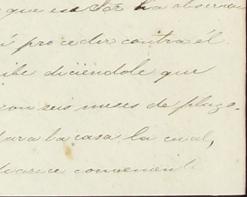 que ese Sor ha observa
á proceder contra él
ibe diciéndole que
con seis meses de plazo.
para la casa la cual,
conveniente